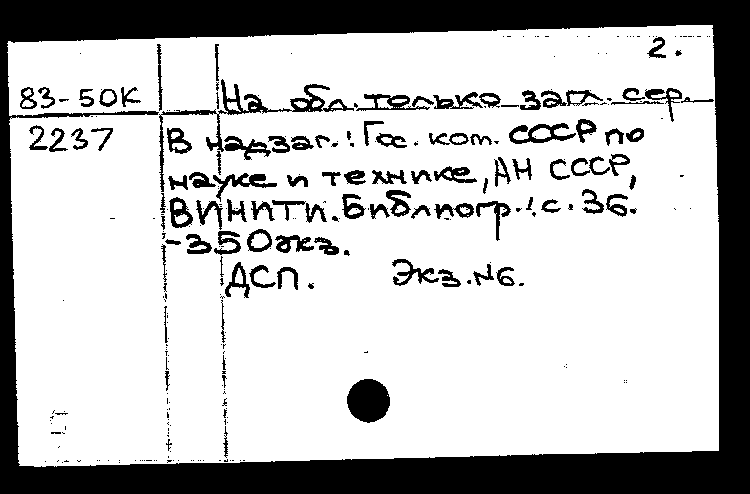 2.
83-50К На обл. только загл. сер.
2237 В надзаг.: Гос. ком. СССР по
науке и технике, АН СССР,
ВИНИТИ. Библиогр.: с. 36.
-350экз.
ДСП. Экз. №6.